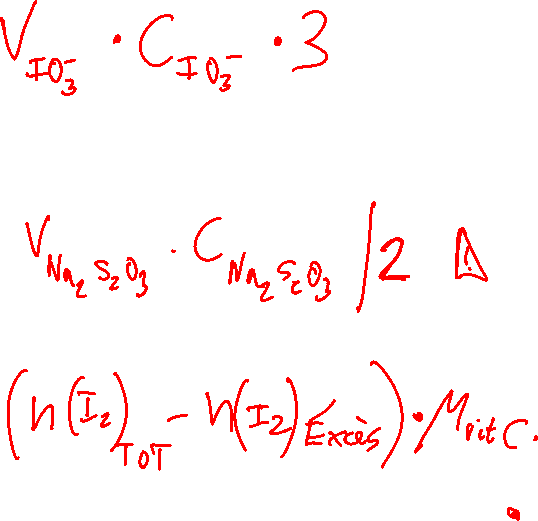 V_IO₃⁻ · C_IO₃⁻ · 3
V_Na₂S₂O₃ · C_Na₂S₂O₃ /2 ⚠
(n(I₂)_TOT - n(I₂)_Excès) · M_vit C.